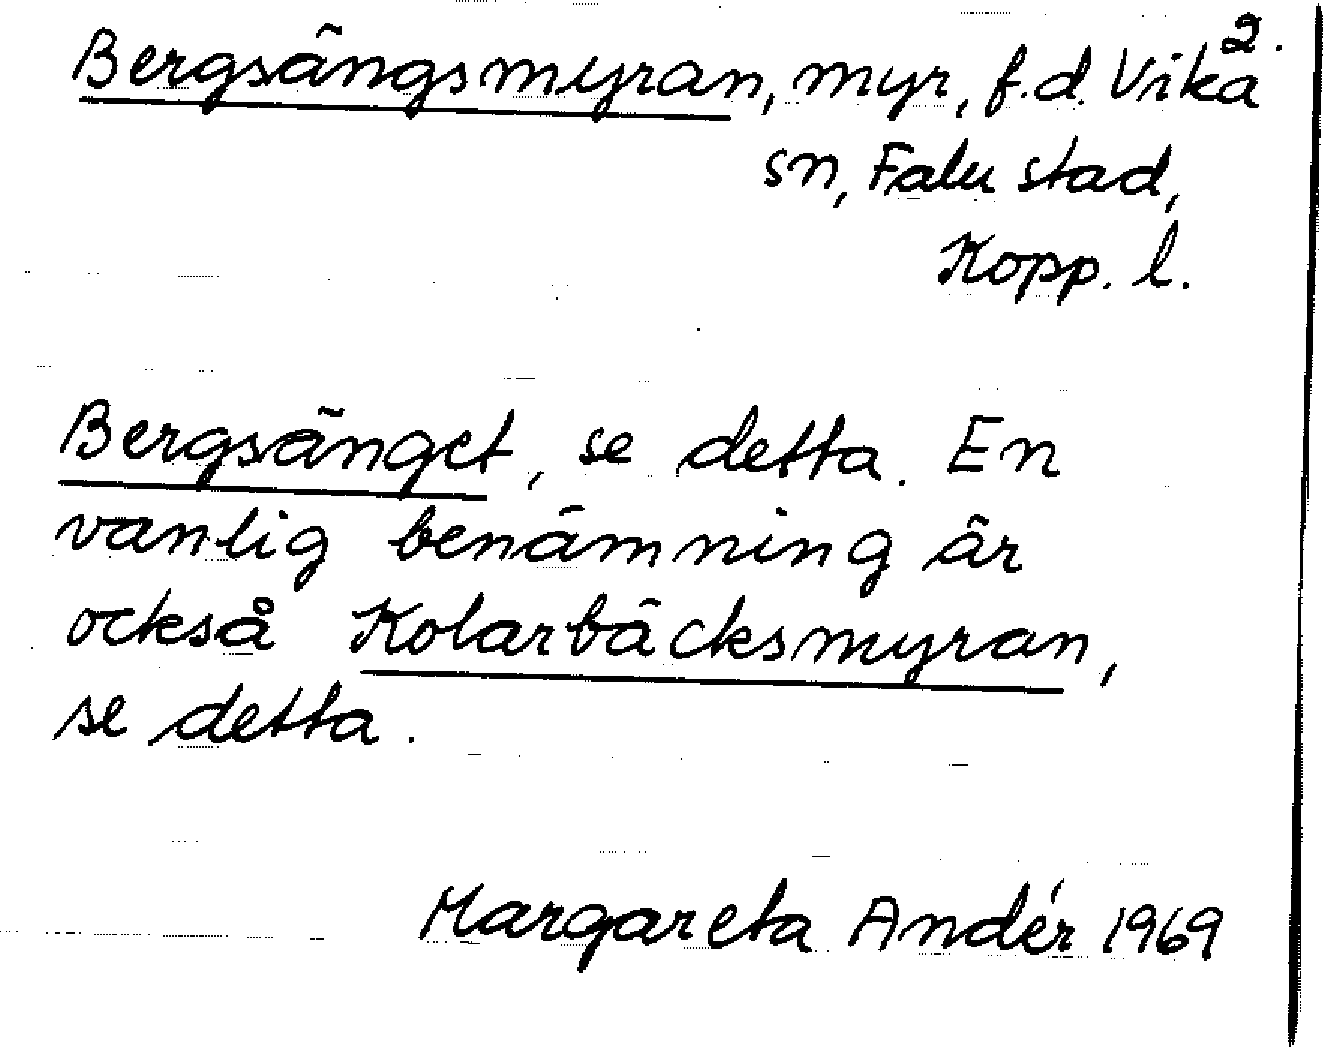 2.
Bergsängsmyran, myr, f.d. Vika
sn, Falu stad,
Kopp. l.
Bergsänget, se detta. En
vanlig benämning är
också Kolarbäcksmyran,
se detta.
Margareta Andér 1969